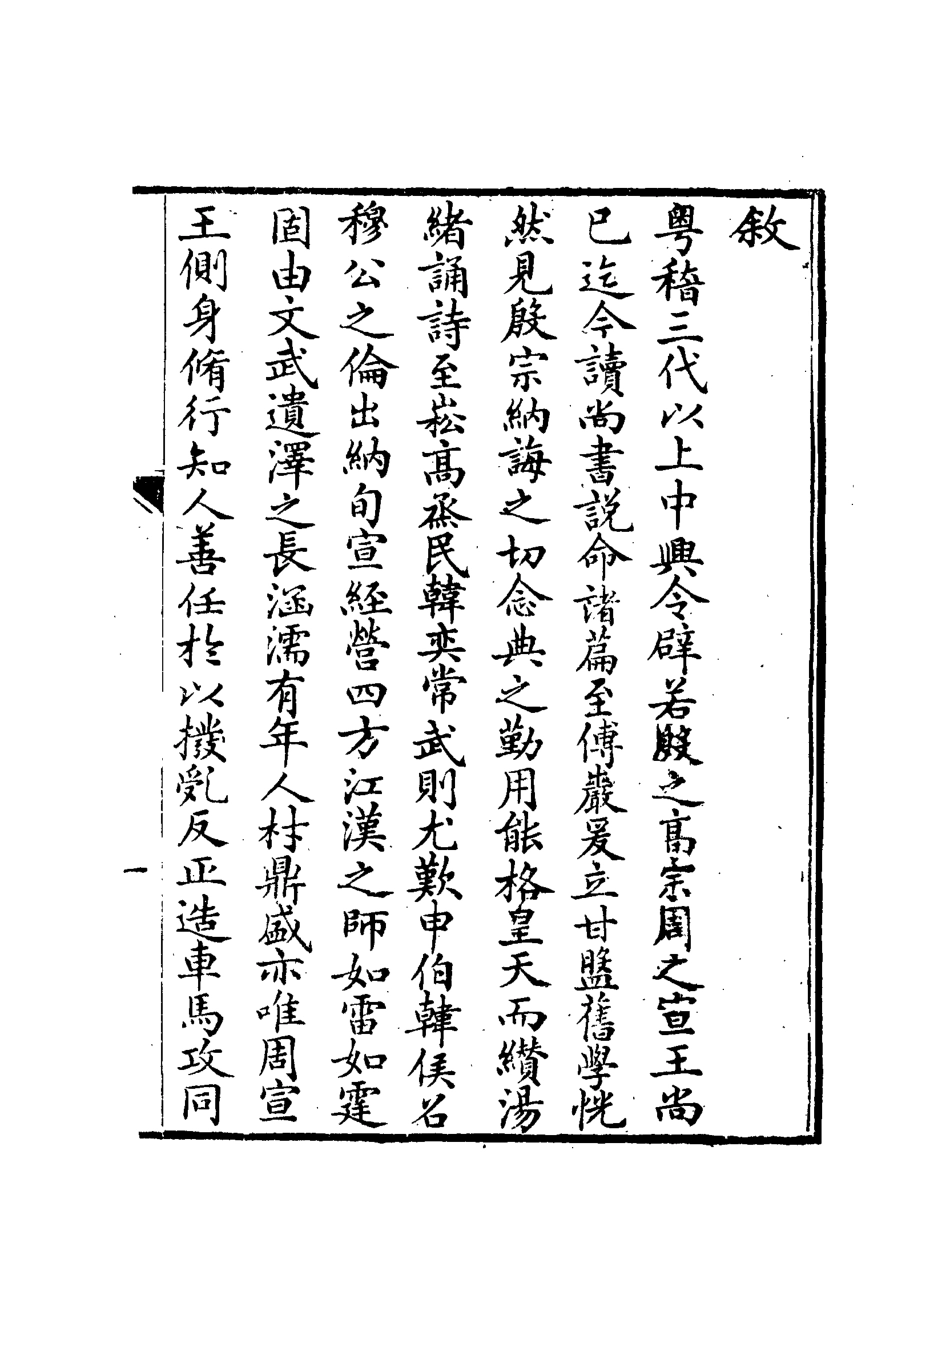 敘
粵稽三代以上中興令辟若殷之高宗周之宣王尚
已迄今讀尚書說命諸篇至傅巖爰立甘盤舊學恍
然見殷宗納誨之切念典之勤用能格皇天而纘湯
緒誦詩至崧高烝民韓奕常武則尤歎申伯韓侯召
穆公之倫出納旬宣經營四方江漢之師如雷如霆
固由文武遺澤之長涵濡有年人材鼎盛亦唯周宣
王側身脩行知人善任於以撥亂反正造車馬攻同
一